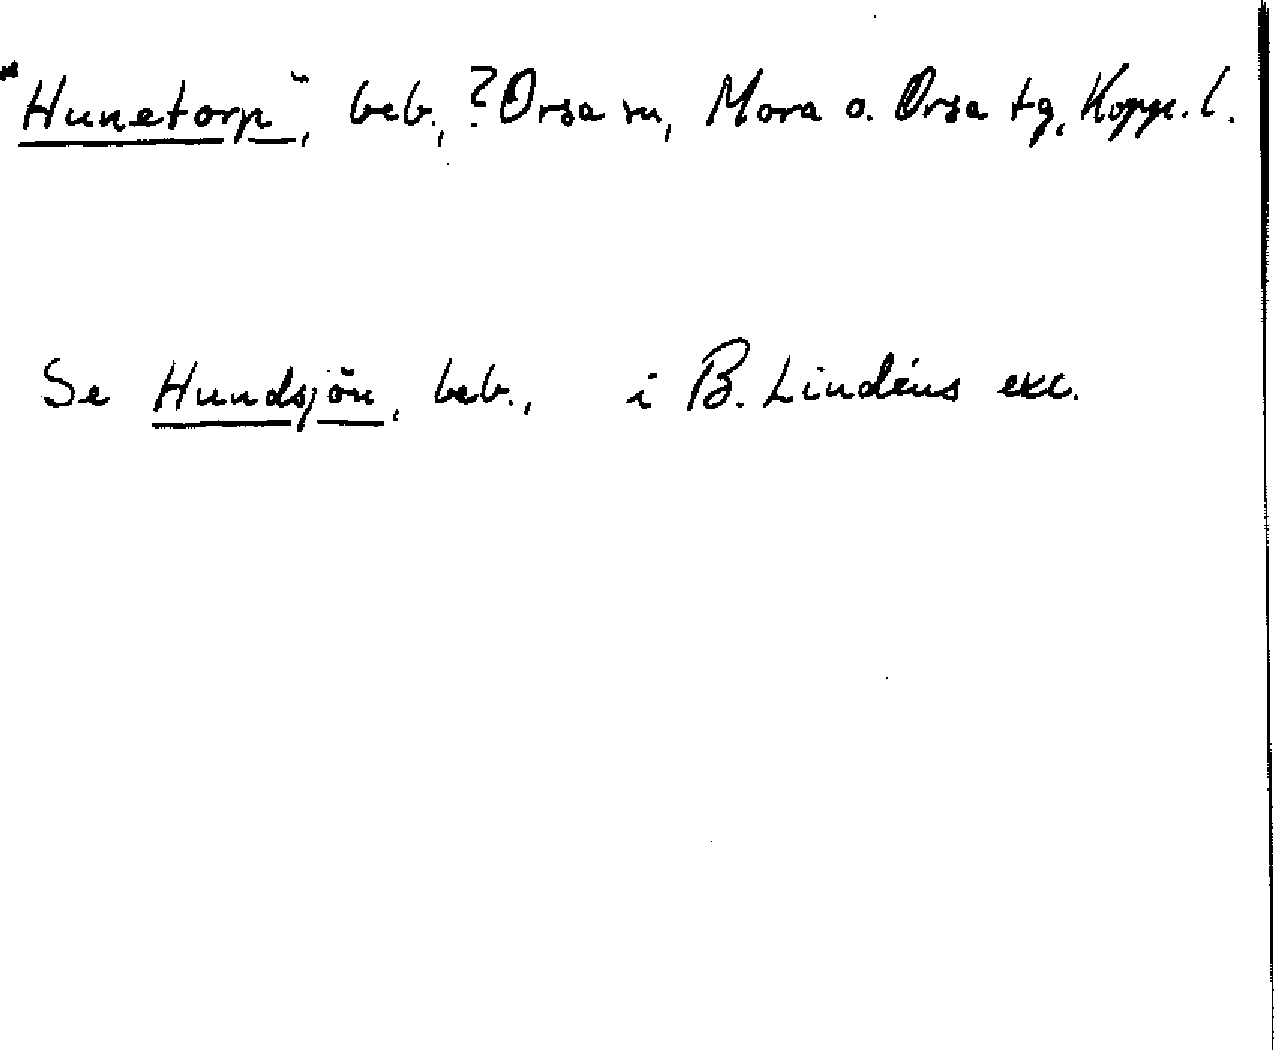 "Hunetorp", beb., ? Orsa sn, Mora o. Orsa tg, Kopp. l.
Se Hundsjön, beb., i B. Lindéns exc.